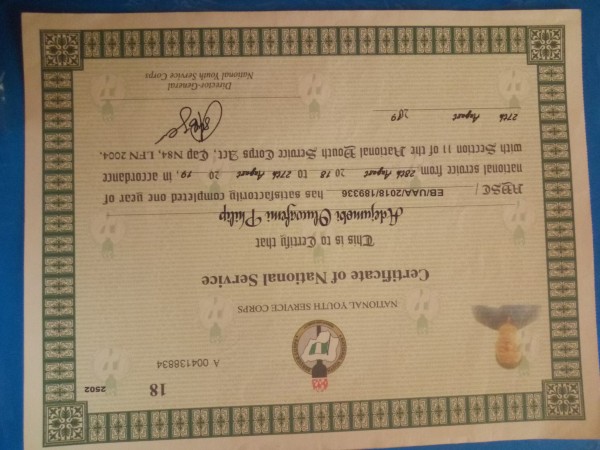 18
2502
A 004138834
NATIONAL YOUTH SERVICE CORPS
Certificate of National Service
This is to Certify that
Adejumobi Oluwafemi Philip
NYSC/ EB/UAA/2018/189336 has satisfactorily completed one year of
national service from 28th August 2018 to 27th August 2019, in accordance
with Section 11 of the National Youth Service Corps Act, Cap N84, LFN 2004.
27th August 2019
Director-General
National Youth Service Corps